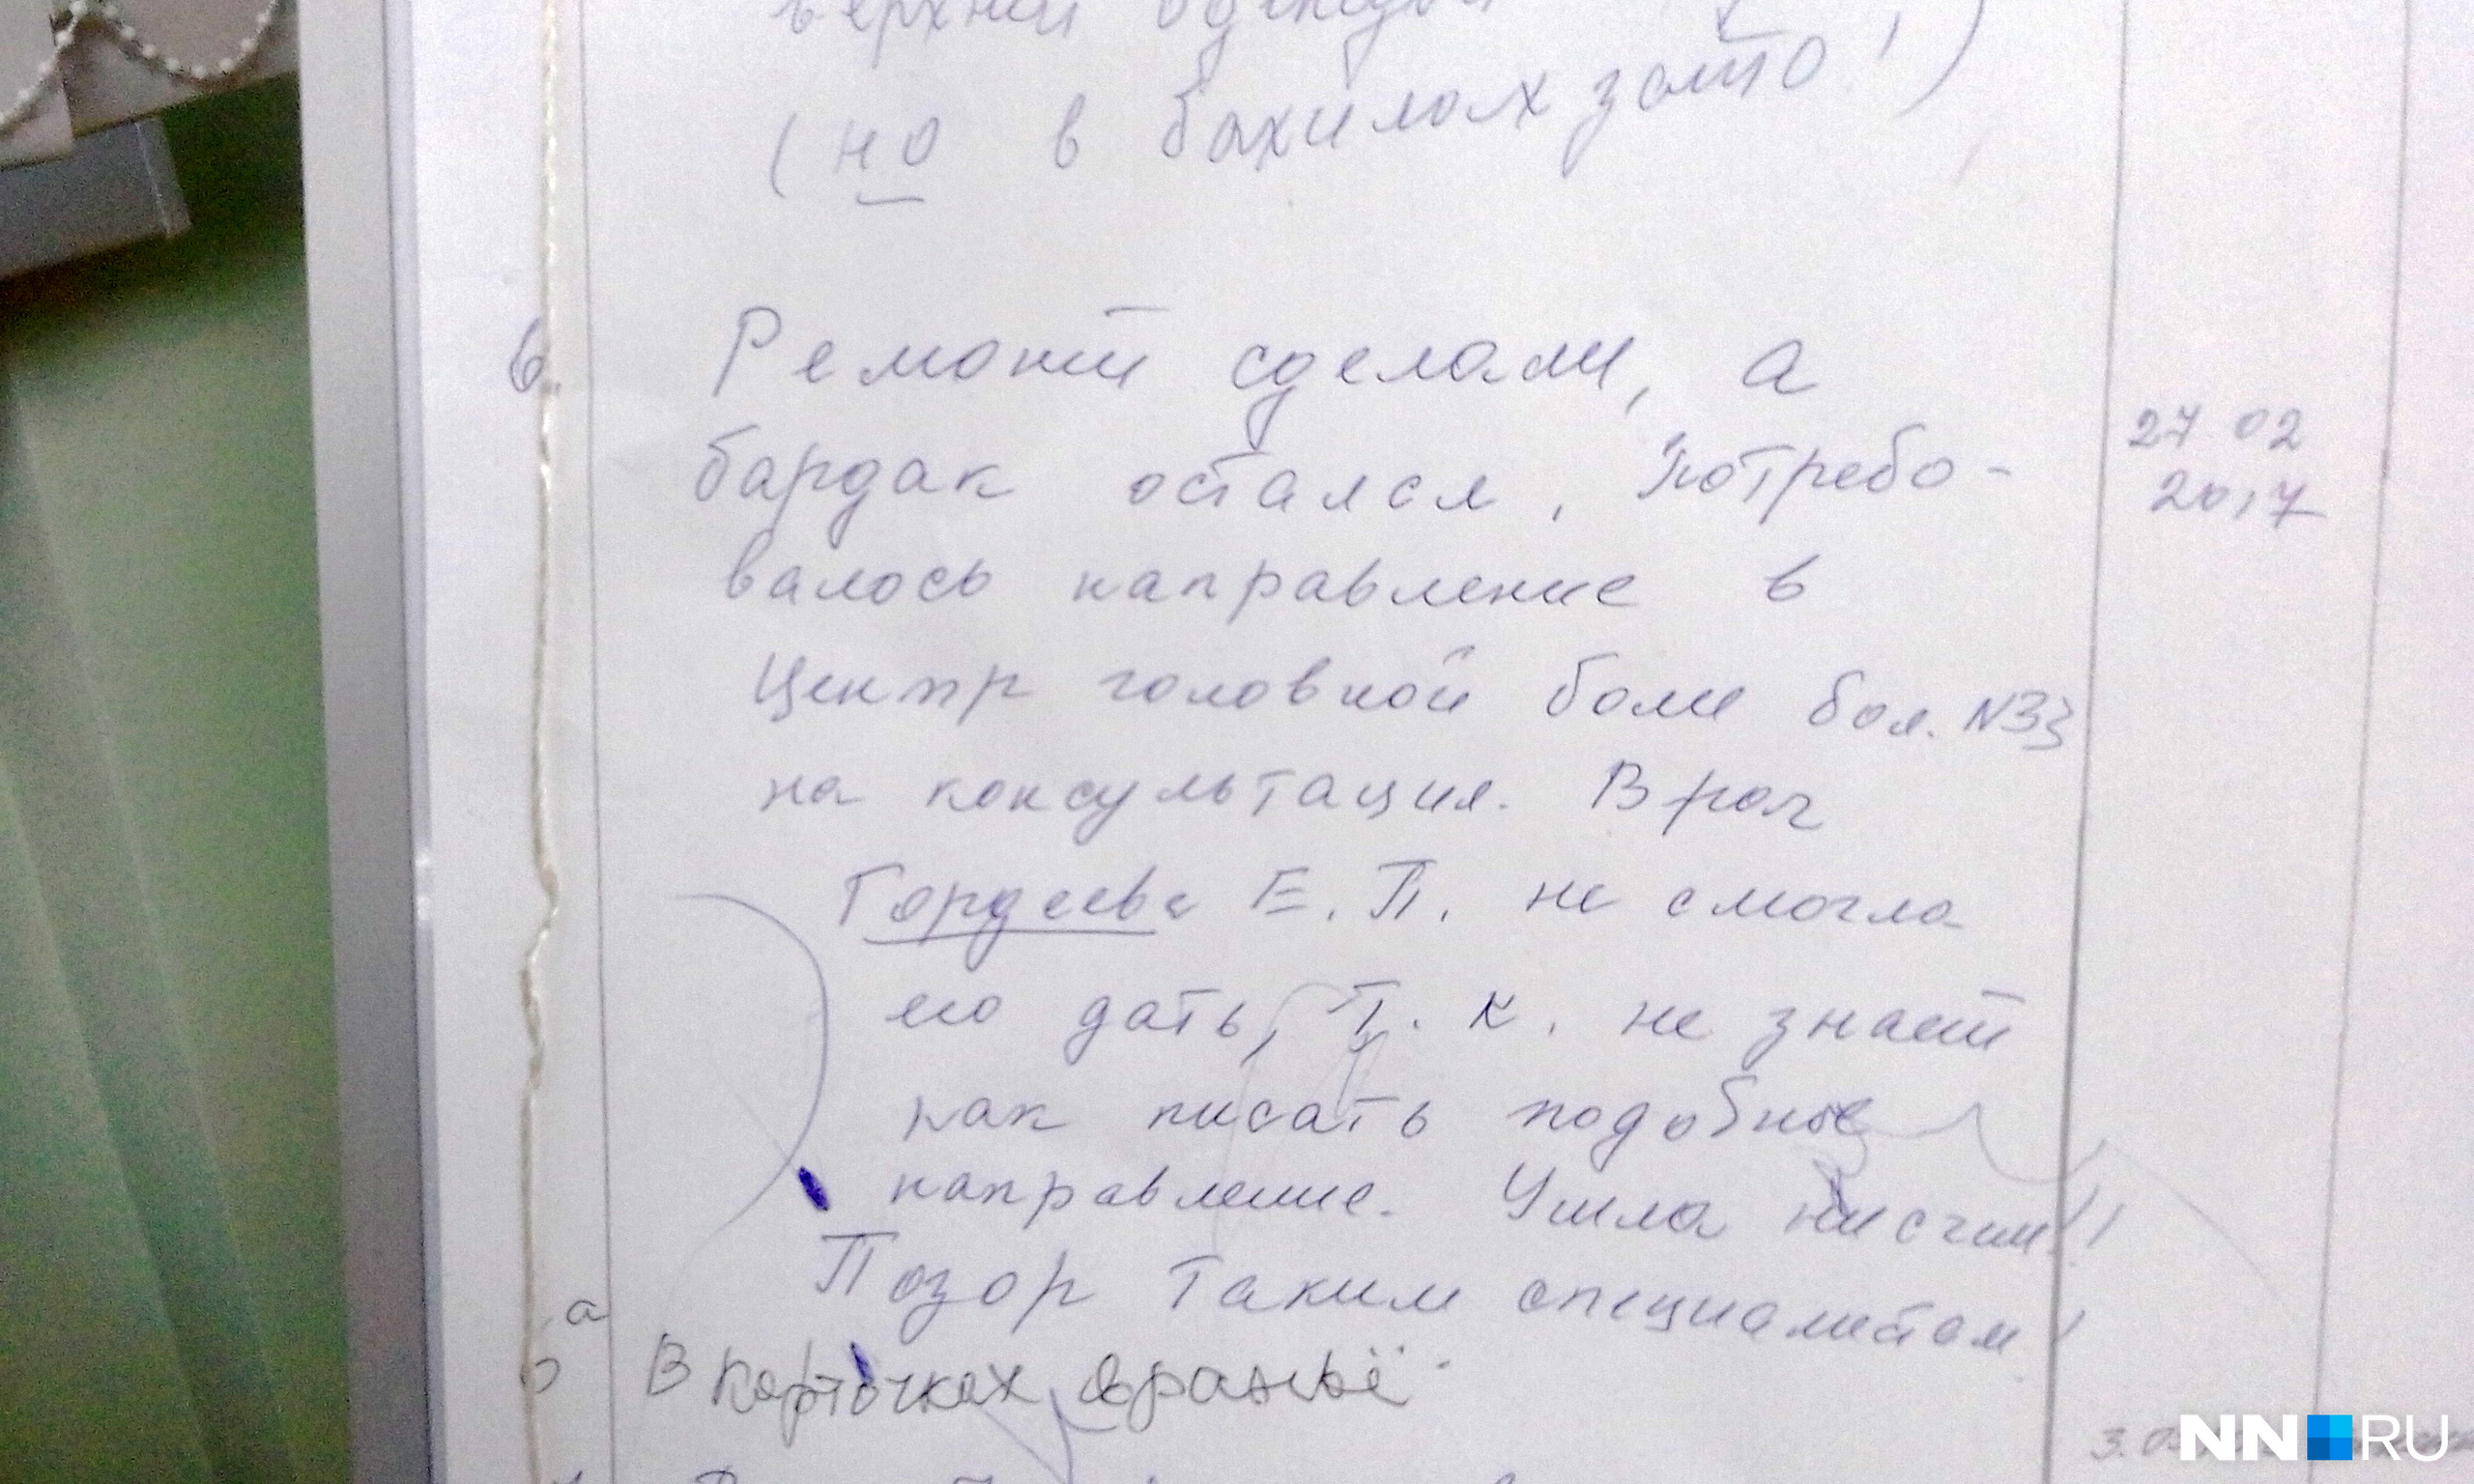 верхней одежды
(но в бахилах зато!)
6. Ремонт сделали, а
бардак остался. Потребо-
27 02
2017
валось направление в
Центр головной боли бол. N33
на консультация. Врач
Гордеева Е. П. не смогла
его дать, т. к. не знает
как писать подобные
направление. Ушла ни с чем!!
Позор таким специалистам!
а
В карточках враньё.
3.0
NN RU